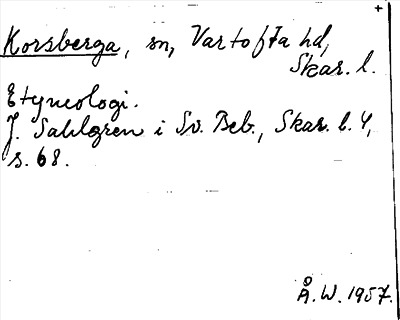 +
Korsberga, sn, Vartofta hd,
Skar. l.
Etymologi.
J. Sahlgren i Sv. Beb., Skar. l. 4,
s. 68.
Å. W. 1957.